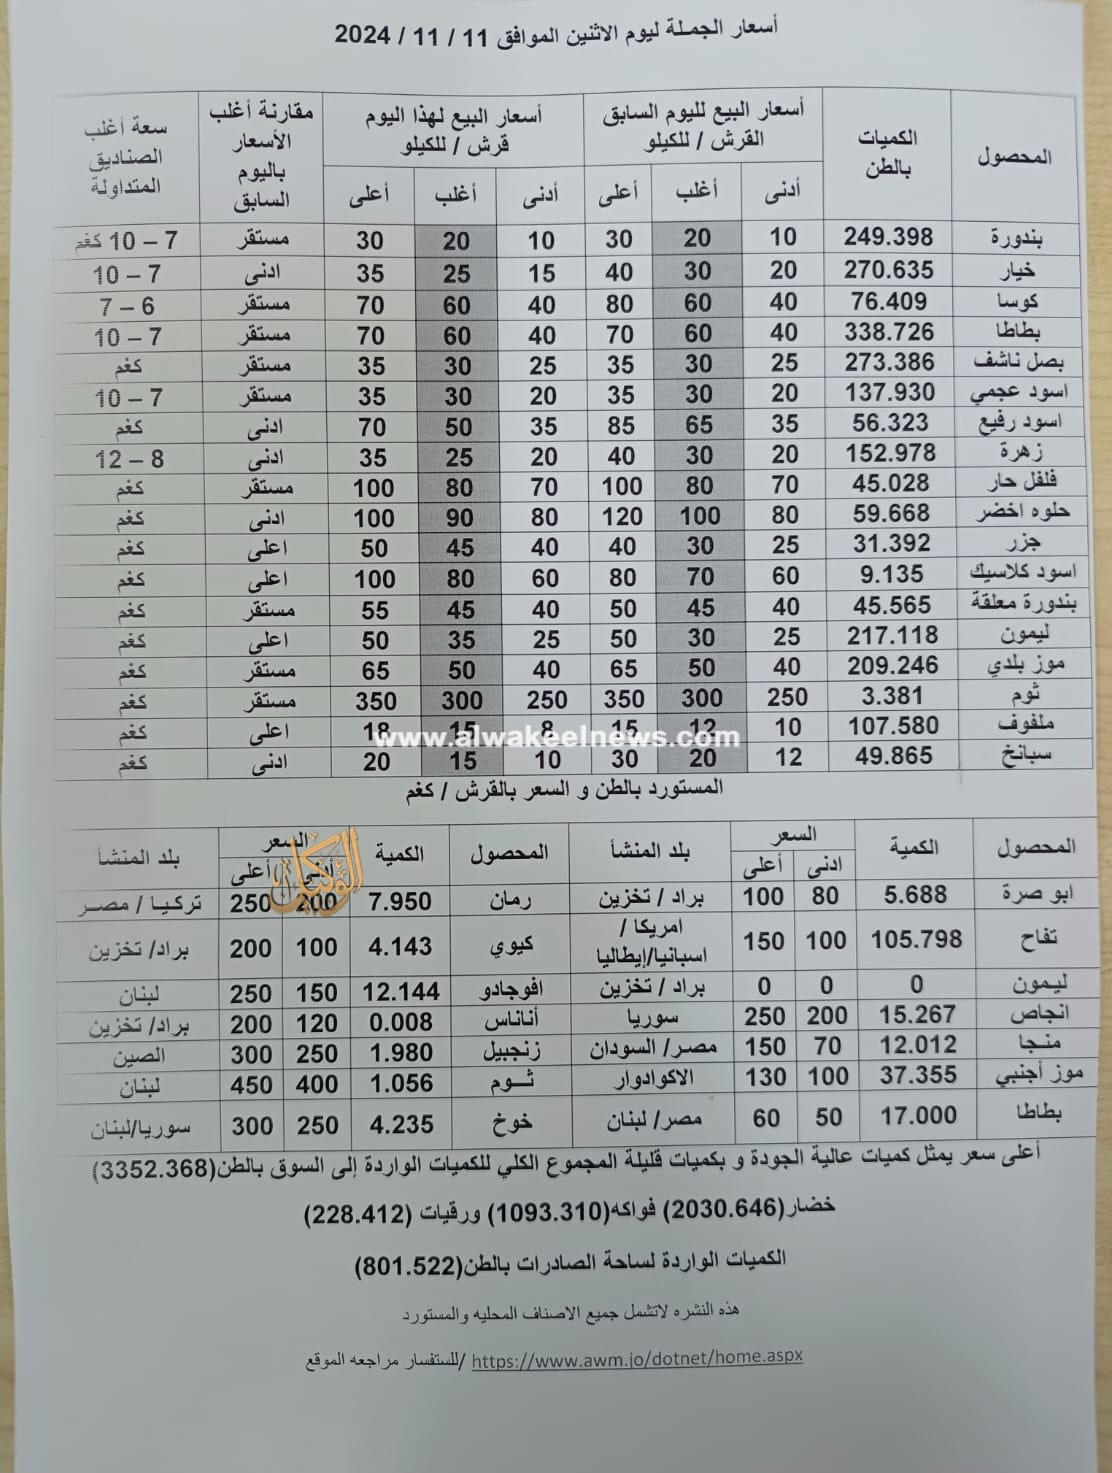 أسعار الجملة ليوم الاثنين الموافق 11 / 11 / 2024
المحصول الكميات بالطن أسعار البيع لليوم السابق القرش / للكيلو أسعار البيع لهذا اليوم قرش / للكيلو مقارنة أغلب الأسعار باليوم السابق سعة أغلب الصناديق المتداولة
أدنى أغلب أعلى أدنى أغلب أعلى
بندورة 249.398 10 20 30 10 20 30 مستقر 7 – 10 كغم
خيار 270.635 20 30 40 15 25 35 ادنى 7 – 10
كوسا 76.409 40 60 80 40 60 70 مستقر 6 – 7
بطاطا 338.726 40 60 70 40 60 70 مستقر 7 – 10
بصل ناشف 273.386 25 30 35 25 30 35 مستقر كغم
اسود عجمي 137.930 20 30 35 20 30 35 مستقر 7 – 10
اسود رفيع 56.323 35 65 85 35 50 70 ادنى كغم
زهرة 152.978 20 30 40 20 25 35 ادنى 8 – 12
فلفل حار 45.028 70 80 100 70 80 100 مستقر كغم
حلوه اخضر 59.668 80 100 120 80 90 100 ادنى كغم
جزر 31.392 25 30 40 40 45 50 اعلى كغم
اسود كلاسيك 9.135 60 70 80 60 80 100 اعلى كغم
بندورة معلقة 45.565 40 45 50 40 45 55 مستقر كغم
ليمون 217.118 25 30 50 25 35 50 اعلى كغم
موز بلدي 209.246 40 50 65 40 50 65 مستقر كغم
ثوم 3.381 250 300 350 250 300 350 مستقر كغم
ملفوف 107.580 10 12 15 8 15 18 اعلى كغم
www.alwakeelnews.com
سبانخ 49.865 12 20 30 10 15 20 ادنى كغم
المستورد بالطن و السعر بالقرش / كغم
المحصول الكمية السعر بلد المنشأ المحصول الكمية السعر بلد المنشأ
ادنى أعلى أدنى أعلى
الوكيل
ابو صرة 5.688 80 100 براد / تخزين رمان 7.950 200 250 تركيا / مصر
تفاح 105.798 100 150 امريكا / اسبانيا/إيطاليا كيوي 4.143 100 200 براد/ تخزين
ليمون 0 0 0 براد / تخزين افوجادو 12.144 150 250 لبنان
انجاص 15.267 200 250 سوريا أناناس 0.008 120 200 براد/ تخزين
منجا 12.012 70 150 مصر/ السودان زنجبيل 1.980 250 300 الصين
موز أجنبي 37.355 100 130 الاكوادوار ثوم 1.056 400 450 لبنان
بطاطا 17.000 50 60 مصر/ لبنان خوخ 4.235 250 300 سوريا/لبنان
أعلى سعر يمثل كميات عالية الجودة و بكميات قليلة المجموع الكلي للكميات الواردة إلى السوق بالطن(3352.368)
خضار(2030.646) فواكه(1093.310) ورقيات (228.412)
الكميات الواردة لساحة الصادرات بالطن(801.522)
هذه النشره لاتشمل جميع الاصناف المحليه والمستورد
https://www.awm.jo/dotnet/home.aspx /للستفسار مراجعه الموقع